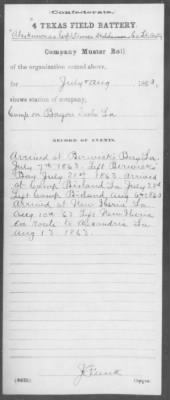 Confederate.
4 TEXAS FIELD BATTERY.
Company Muster Roll
of the organization named above,
for July & Aug 1863,
shows station of company,
Camp on Bayou La
RECORD OF EVENTS.
Arrived at Berwick's Bay La
July 7th 1863. Left Berwick's
Bay July 21st 1863. Arrived
at Camp Bisland La July 23d
Left Camp Bisland Aug 6th 1863
Arrived at New Iberia La
Aug 10th 63 Left New Iberia
en route to Alexandria La
Aug 13. 1863.
Copyist.